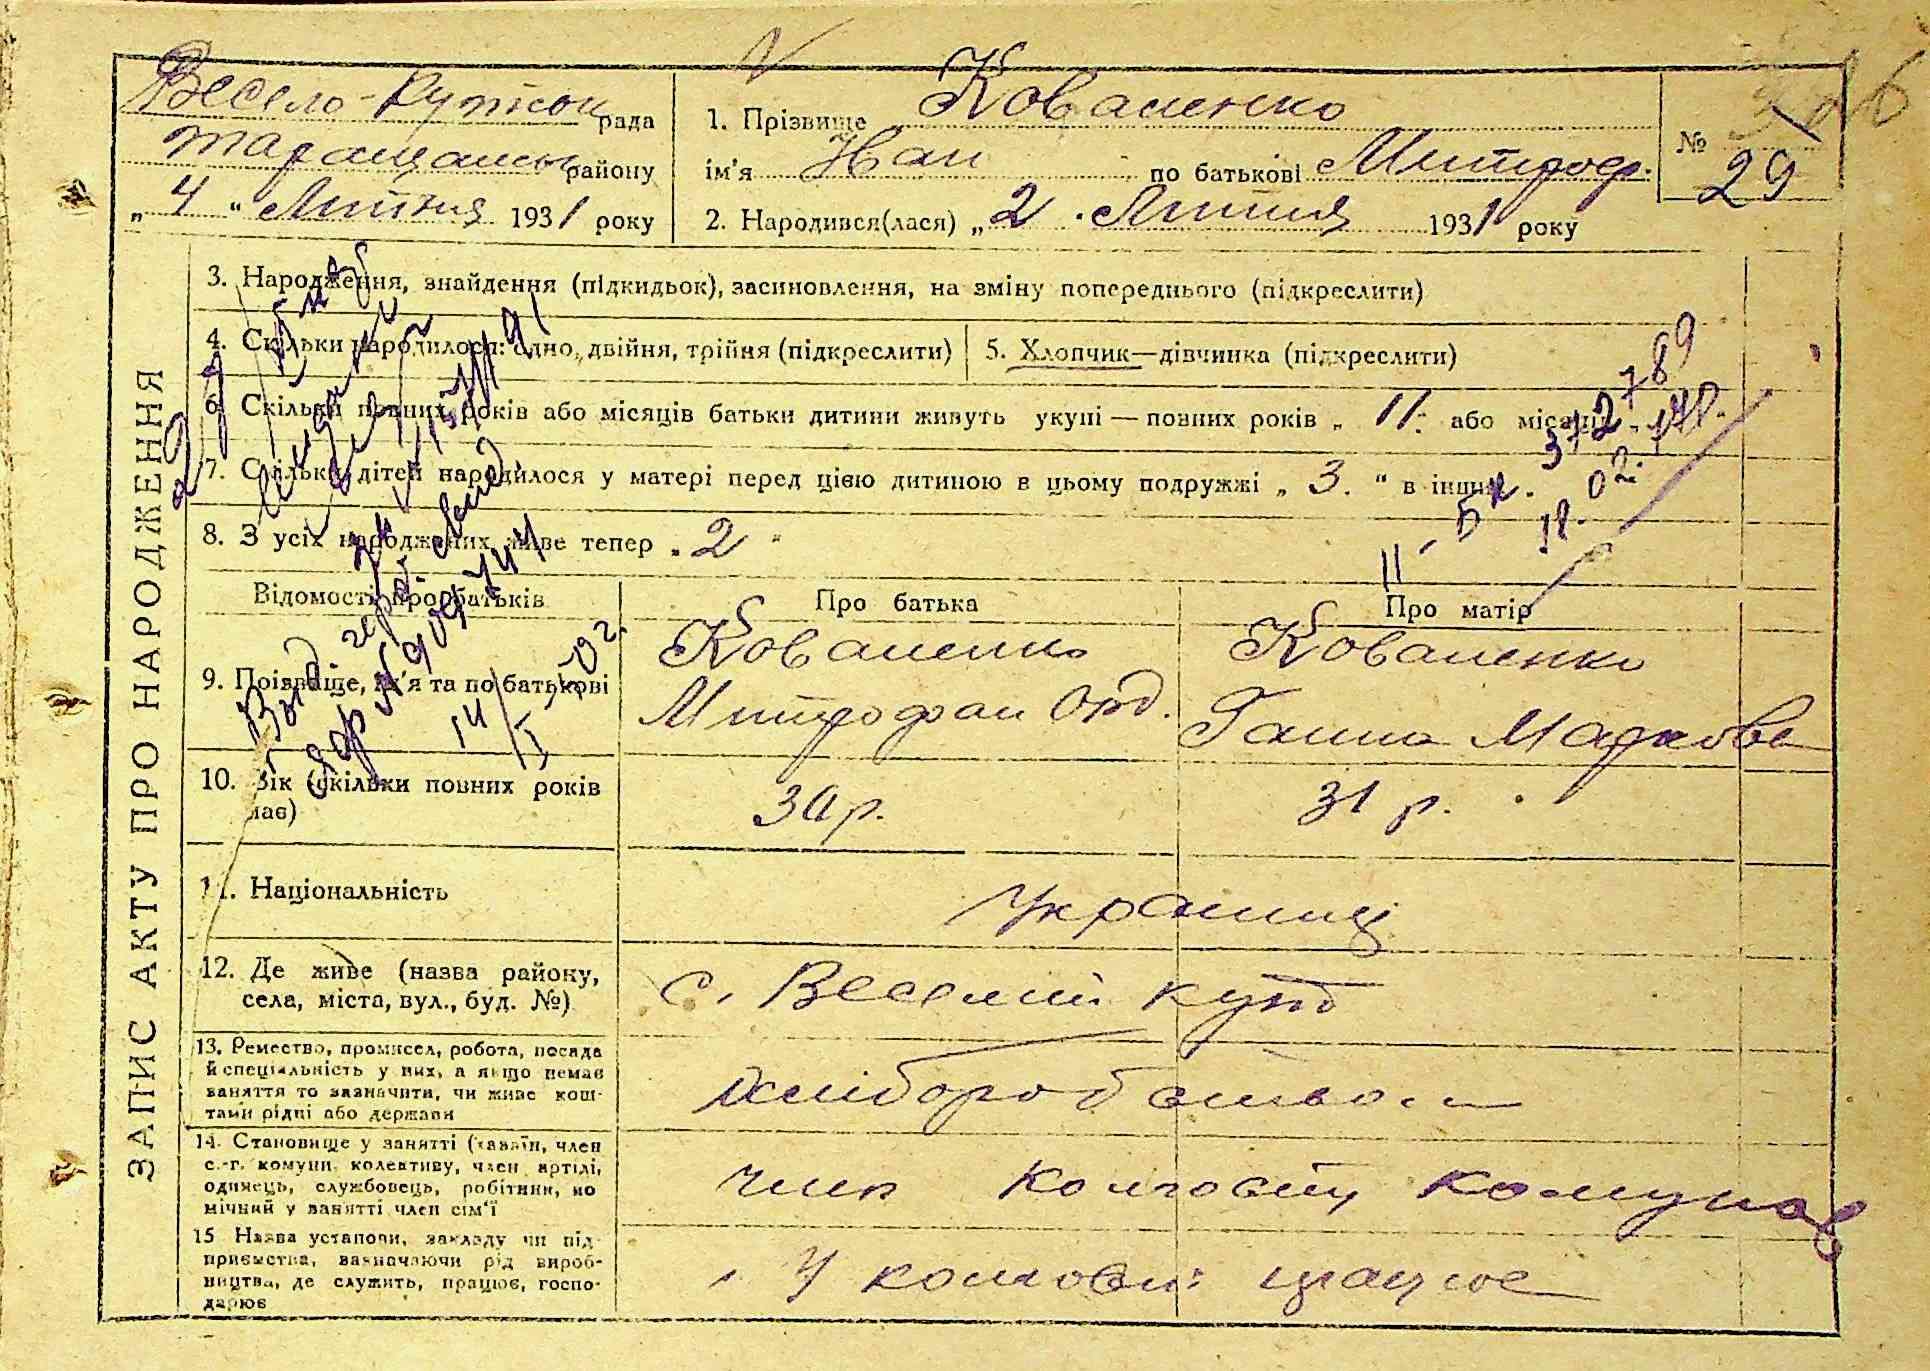 Весело-Кутськ рада
Таращанськ району
„ 4 “ Липня 1931 року
1. Прізвище Коваленко
ім'я Іван по батькові Митроф.
2. Народився(лася) „ 2 . Липня 1931 року
№ 29
ЗАПИС АКТУ ПРО НАРОДЖЕННЯ
3. Народження, знайдення (підкидьок), засиновлення, на зміну попереднього (підкреслити)
4. Скільки народилося: одно, двійня, трійня (підкреслити)
5. Хлопчик—дівчинка (підкреслити)
6. Скільки повних років або місяців батьки дитини живуть укупі — повних років „ 11. або місяців „
7. Скільки дітей народилося у матері перед цією дитиною в цьому подружжі „ 3. “ в інших
8. З усіх народжених живе тепер „ 2 “
Відомості про батьків
Про батька
Про матір
9. Прізвище, ім'я та по батькові
Коваленко
Митрофан
Коваленко
Ганна Маркова
10. Вік (скільки повних років має)
30 р.
31 р.
11. Національність
Українці
12. Де живе (назва району,
села, міста, вул., буд. №)
с. Веселий Кут
13. Ремество, промисел, робота, посада
й спеціяльність у них, а якщо немає
заняття то зазначити, чи живе кош-
тами рідні або держави
хліборобством
14. Становище у занятті (хазяїн, член
с.-г. комуни, колективу, член артілі,
одинець, службовець, робітник, по
мічний у занятті член сім'ї
член колгоспу
15 Назва установи, закладу чи під-
приємства, вазначаючи рід вироб-
ництва, де служить, працює, госпо-
дарює
У колгоспі працює